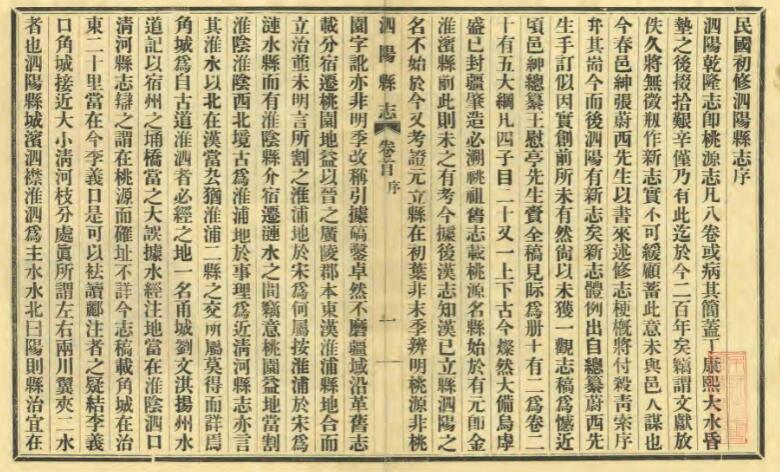 民國初修泗陽縣志序
泗陽乾隆志卽桃源志凡八卷或病其簡蓋丁康熙大水昏
墊之後掇拾艱辛僅乃有此迄於今二百年矣竊謂文獻放
佚久將無徵甁作新志實不可緩顧蓄此意未與邑人謀也
今春邑紳張蔚西先生以書來述修志梗槪將付殺靑索序
弁其耑今而後泗陽有新志矣新志體例出自總纂蔚西先
生手訂似因實創前所未有然尙以未獲一觀志稿爲憾近
頃邑紳總纂王慰亭先生賚全稿見眎爲册十有二爲卷二
十有五大綱凡四子目二十又一上下古今燦然大備烏虖
盛已封疆肇造必溯祧祖舊志載桃源名縣始於有元卽金
淮濱縣前此則未之有考今據後漢志知漢已立縣泗陽之
名不始於今又考證元立縣在初葉非末季辨明桃源非桃
泗陽縣志 卷首 序 一
園字訛亦非明季改稱引據碻鑿卓然不磨疆域沿革舊志
載分宿遷桃園地益以晉之廣陵郡本東漢淮浦縣地合而
立治茝未明言所割之淮浦地於宋爲何屬按淮浦於宋爲
漣水縣而有淮陰縣介宿遷漣水之間竊意桃園益地當割
淮陰淮陰西北境古爲淮浦地於事理爲近淸河縣志亦言
其淮水以北在漢當厹猶淮浦二縣之交所屬莫得而詳焉
角城爲自古道淮泗者必經之地一名甬城劉文淇揚州水
道記以宿州之埇橋當之大誤據水經注地當在淮陰泗口
淸河縣志辯之謂在桃源而確址不詳今志稿載角城在治
東二十里當在今李義口是可以袪讀酈注者之疑結李義
口角城接近大小淸河枝分處眞所謂左右兩川翼夾二水
者也泗陽縣城濱泗襟淮泗爲主水水北曰陽則縣治宜在